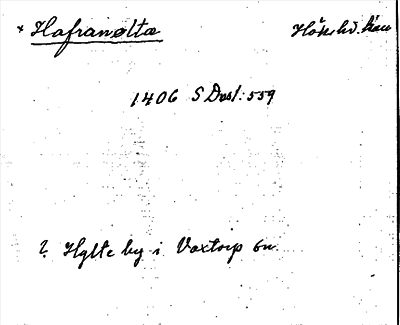 * Hafranøltæ Hökshd. häu
1406 SDns I: 559
? Hylte by i Voxtorp sn.